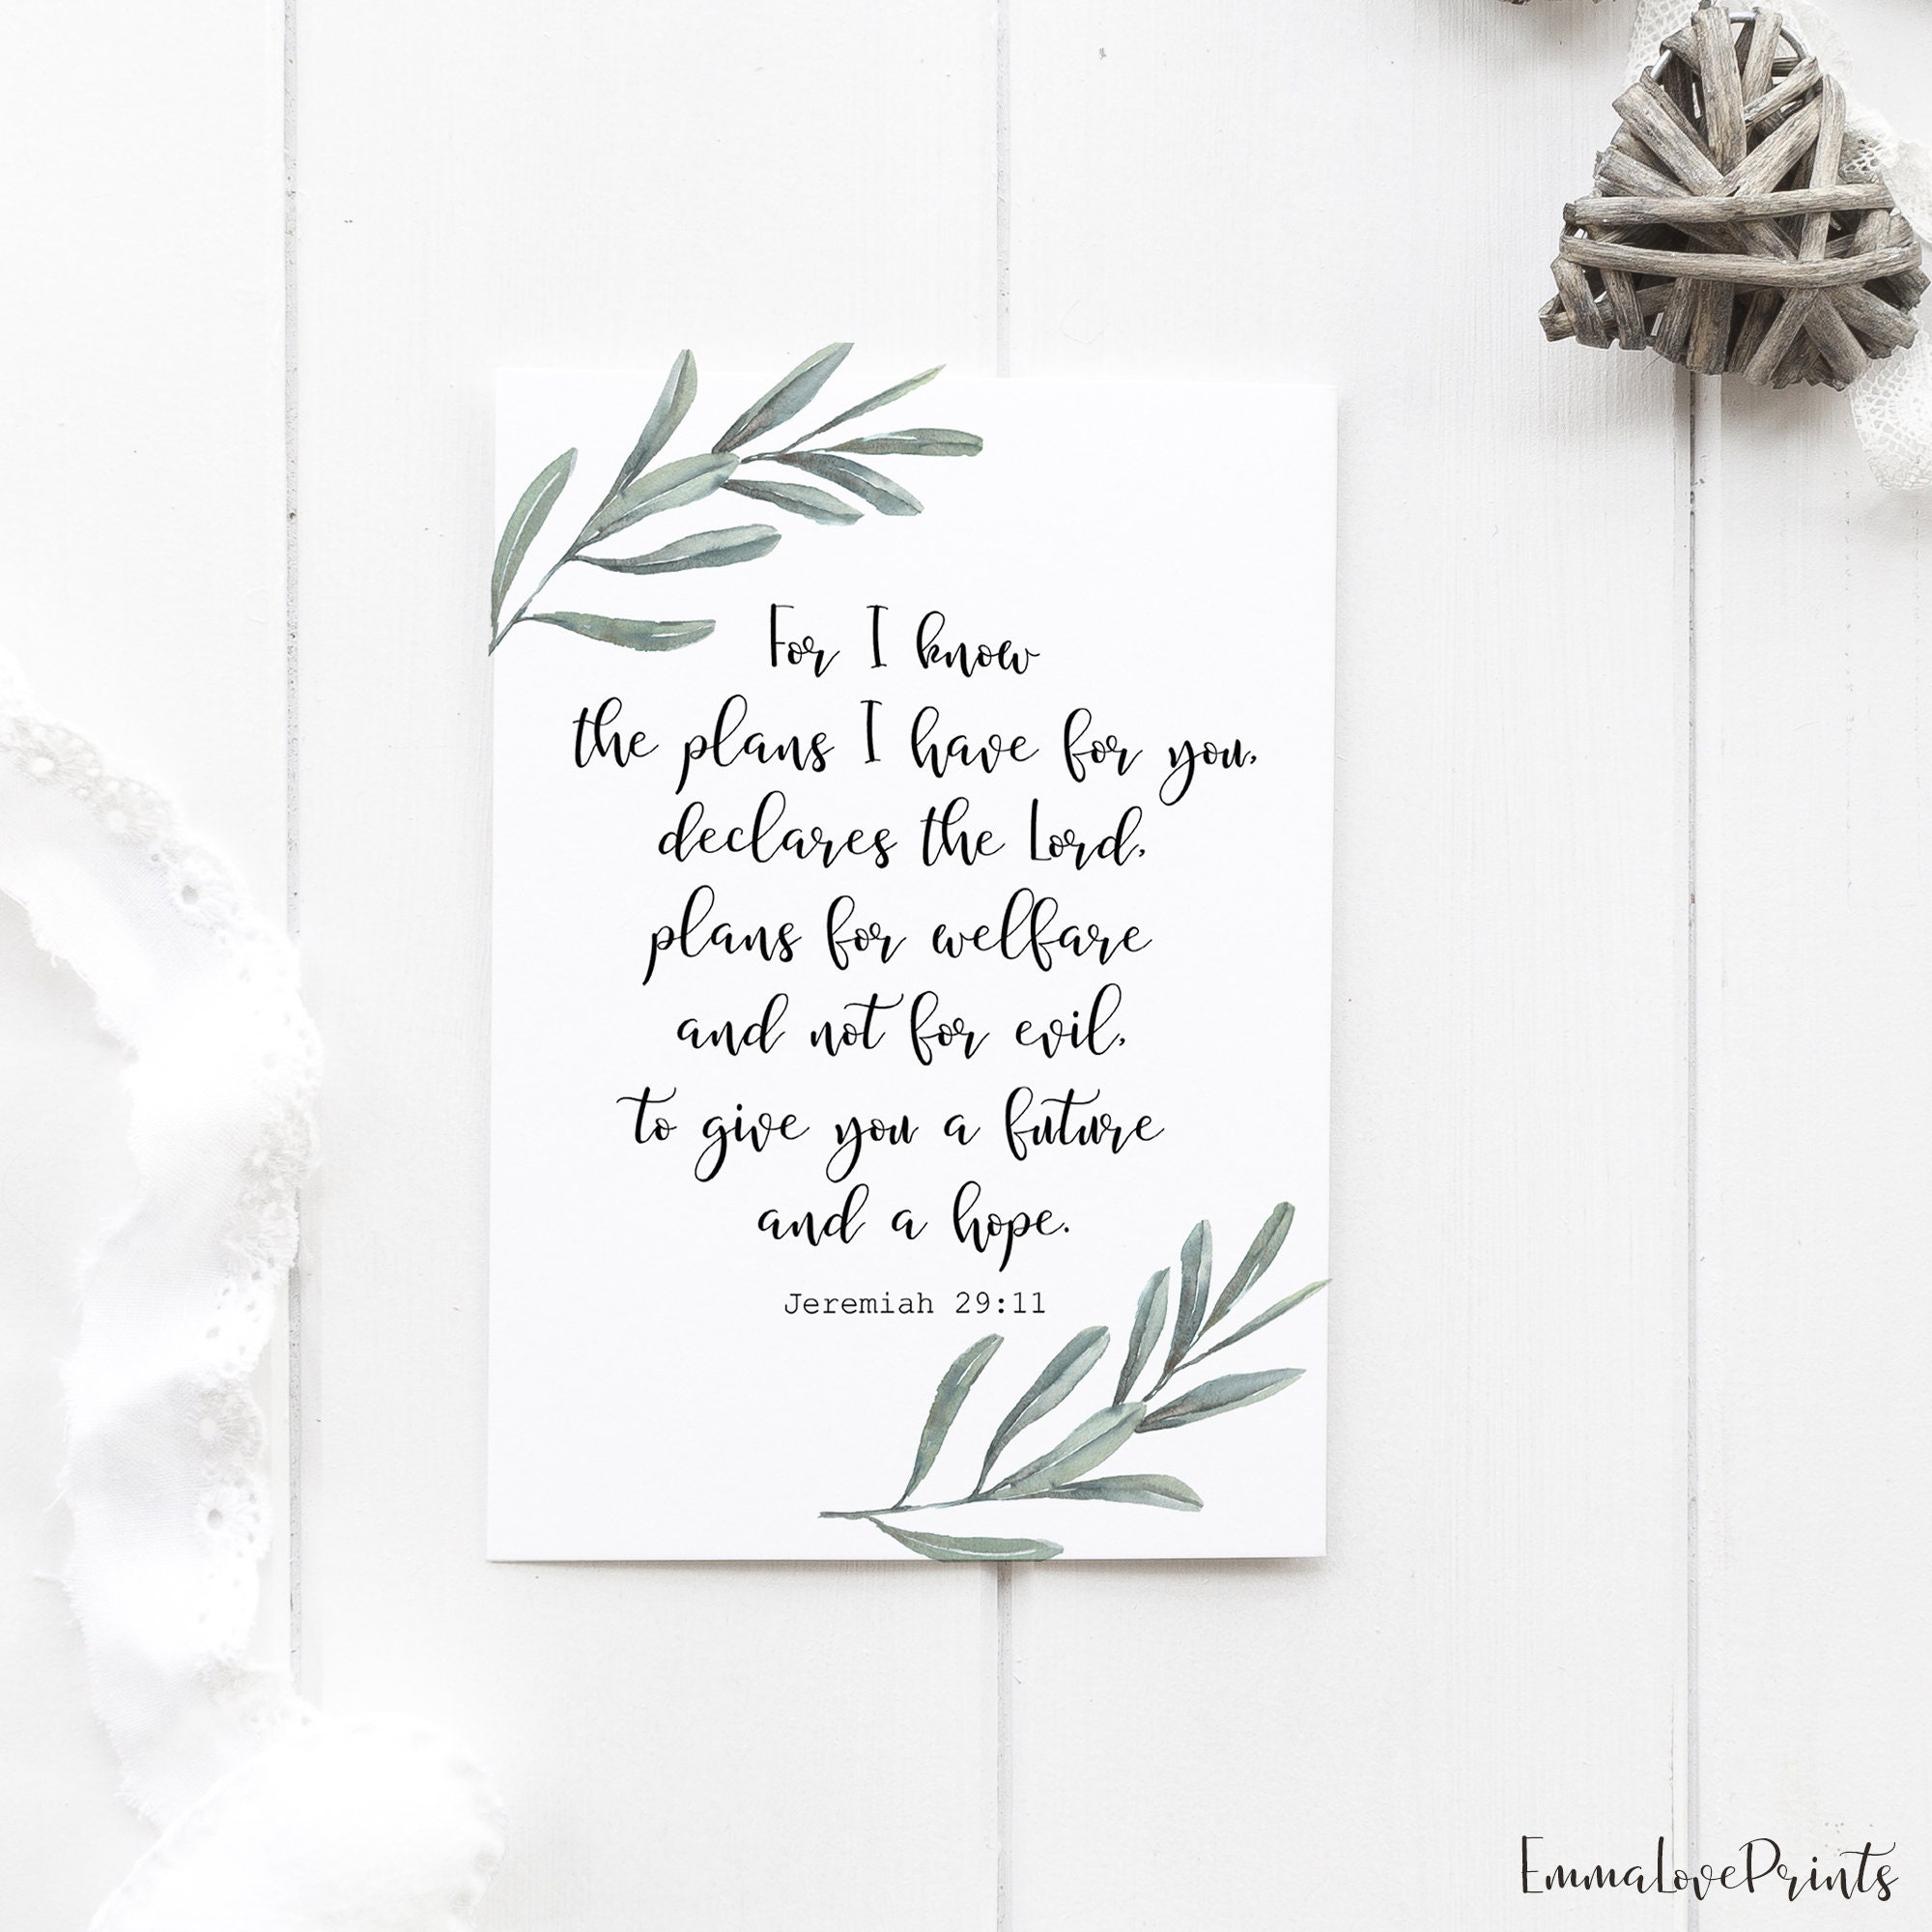 For I know
the plans I have for you,
declares the Lord,
plans for welfare
and not for evil,
to give you a future
and a hope.
Jeremiah 29:11
EmmaLovePrints